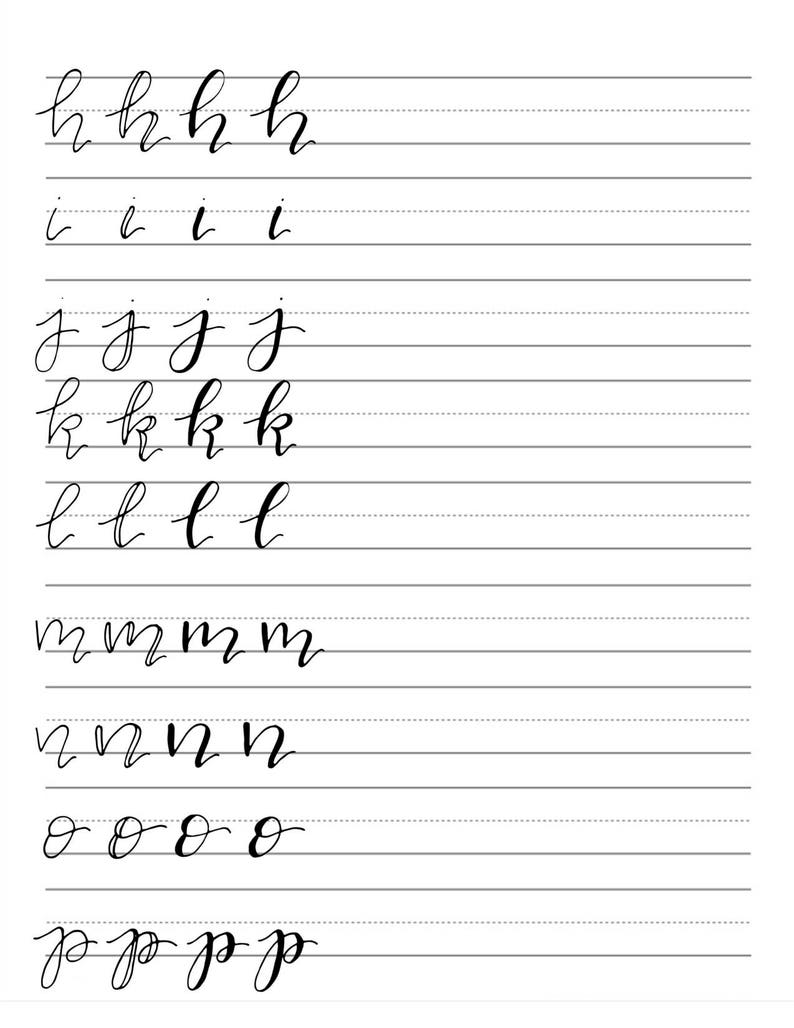 h h h h
i i i i
j j j j
k k k k
l l l l
m m m m
n n n n
o o o o
p p p p